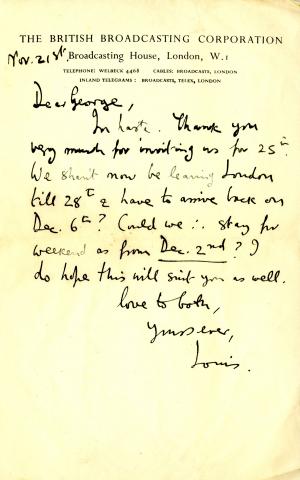 THE BRITISH BROADCASTING CORPORATION
Nov. 21st. Broadcasting House, London, W.1
TELEPHONE: WELBECK 4468 CABLES: BROADCASTS, LONDON
INLAND TELEGRAMS: BROADCASTS, TELEX, LONDON
Dear George,
In haste. Thank you
very much for inviting us for 25th.
We shan't now be leaving London
till 28th & have to arrive back on
Dec. 6th? Could we ∴ stay for
weekend as from Dec. 2nd? I
do hope this will suit you as well.
love to both,
Yours ever,
Louis.